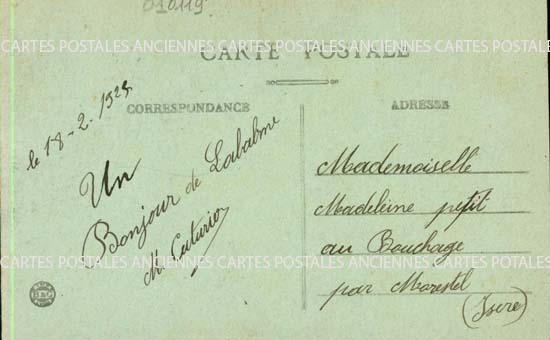 010119
CARTES POSTALES ANCIENNES CARTES POSTALES ANCIENNES CARTES POSTALES
CARTE POSTALE
CORRESPONDANCE
ADRESSE
le 18-2. 1925
Un
Bonjour de Labalme
M.
Mademoiselle
Madeleine petit
au Bouchage
CARTES POSTALES ANCIENNES CARTES POSTALES ANCIENNES CARTES POSTALES
par Morestel
(Isère)
B&G